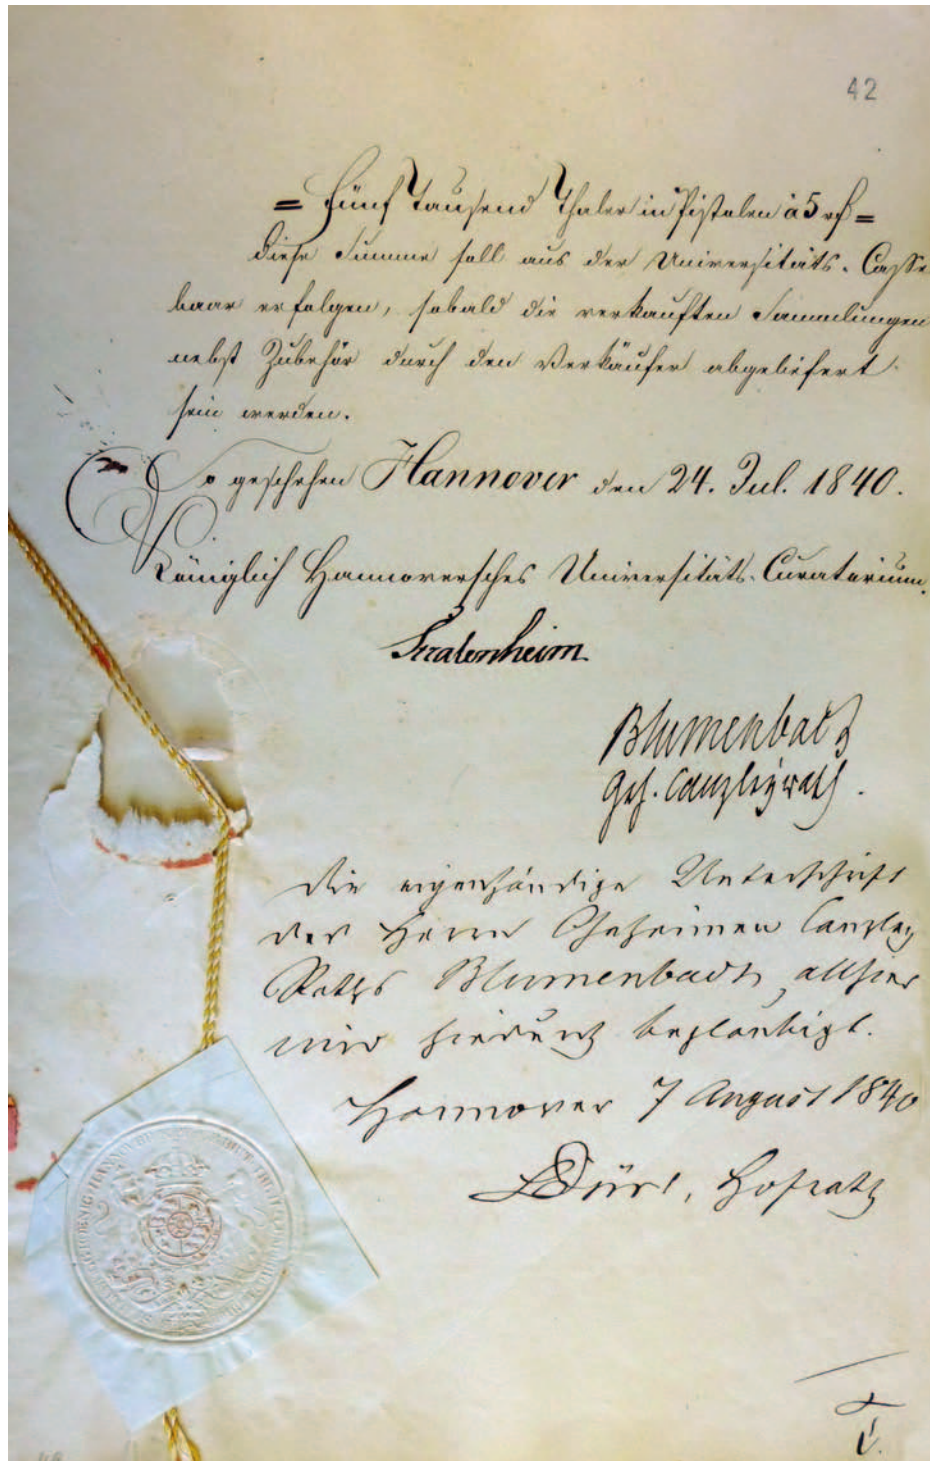 42
= Fünf Tausend Thaler in Pistolen à 5 rf =
diese Summe soll aus der Universitäts-Casse
baar erfolgen, sobald die verkauften Sammlungen
nebst Zubehör durch den Verkäufer abgeliefert
sein werden.
So geschehen Hannover den 24. Jul. 1840.
Königlich Hannoversches Universitäts-Curatorium.
Stralenheim
Blumenbach
Geh. Canzleyrath.
Die eigenhändige Unterschrift
des Herrn Geheimen Canzley
Raths Blumenbach, allhier
wird hierdurch beglaubigt.
Hannover 7 August 1840
Hofrath